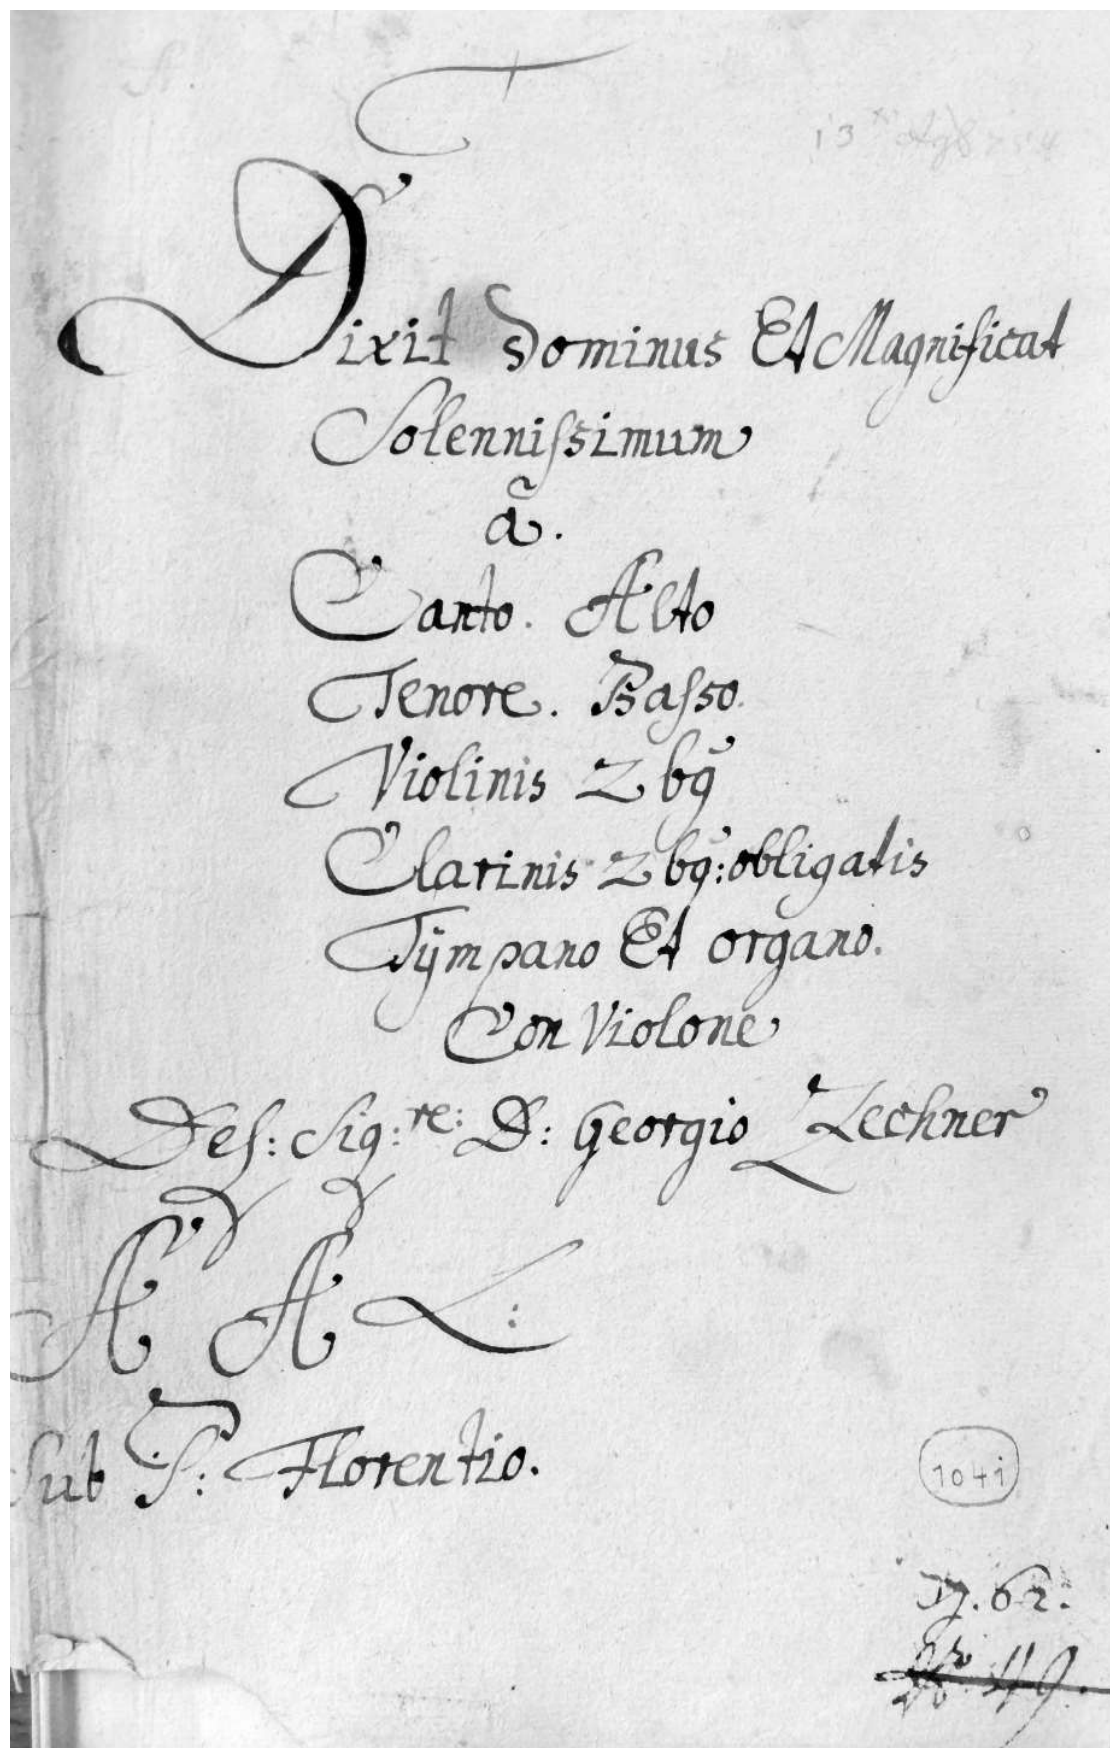 Dixit Dominus Et Magnificat
Solennissimum
ã.
Canto. Alto
Tenore. Basso.
Violinis 2 bq̃
Clarinis 2 bq̃: obligatis
Tÿmpano Et organo.
Con Violone
Del: Sig:re: D: Georgio Zechner
A A L:
Sub P: Florentio.
1041
62.
49.